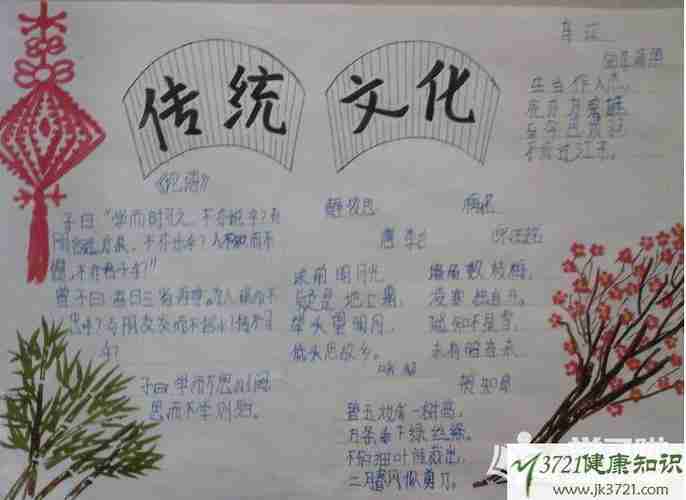 传统 文化
《论语》
子曰"学而时习之，不亦说乎？有
朋自远方来，不亦乐乎？人不知而不
愠，不亦君子乎？"
曾子曰：吾日三省吾身。为人谋而不
忠乎？与朋友交而不信乎？传不习
乎？
子曰学而不思则罔
思而不学则殆。
静夜思
唐 李白
床前明月光
疑是地上霜，
举头望明月，
低头思故乡。
梅花
墙角数枝梅，
凌寒独自开。
遥知不是雪，
未有暗香来
咏柳
贺知章
碧玉妆成一树高，
万条垂下绿丝绦。
不知细叶谁裁出，
二月春风似剪刀。
李清照
生当作人杰，
死亦为鬼雄
至今思项羽
不肯过江东。
3721健康知识
www.jk3721.com